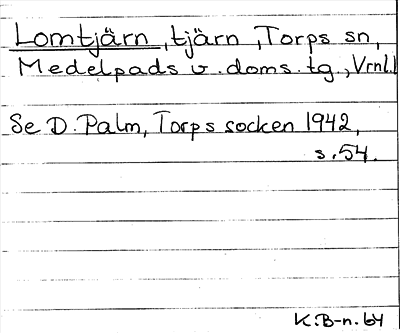 Lomtjärn, tjärn, Torps sn,
Medelpads v. doms. tg., Vrnl.l
Se D. Palm, Torps socken 1942,
s. 54.
K.B-n. 64